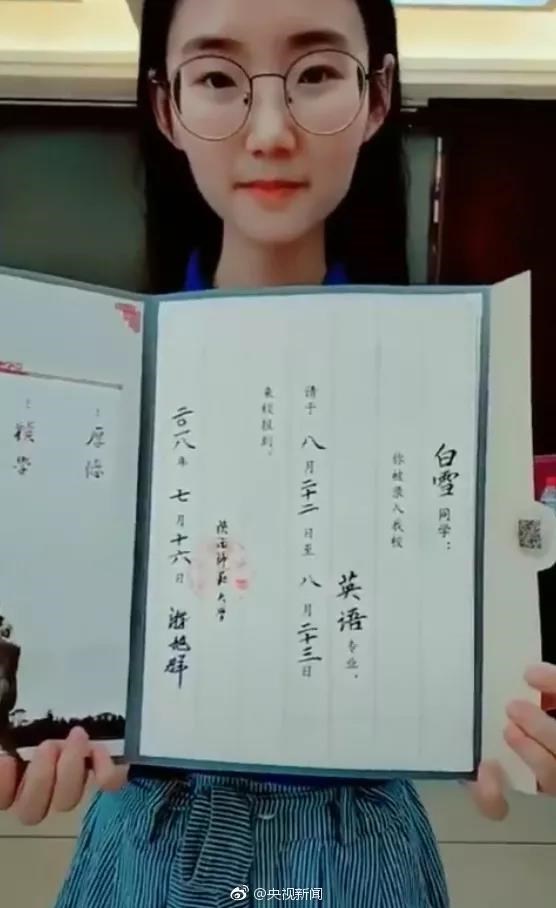 白雪同学：
你被录入我校
英语专业，
请于八月二十二日至八月二十三日
来校报到。
陕西师范大学
二〇一八年七月十六日
游旭群
厚德
积学
@央视新闻